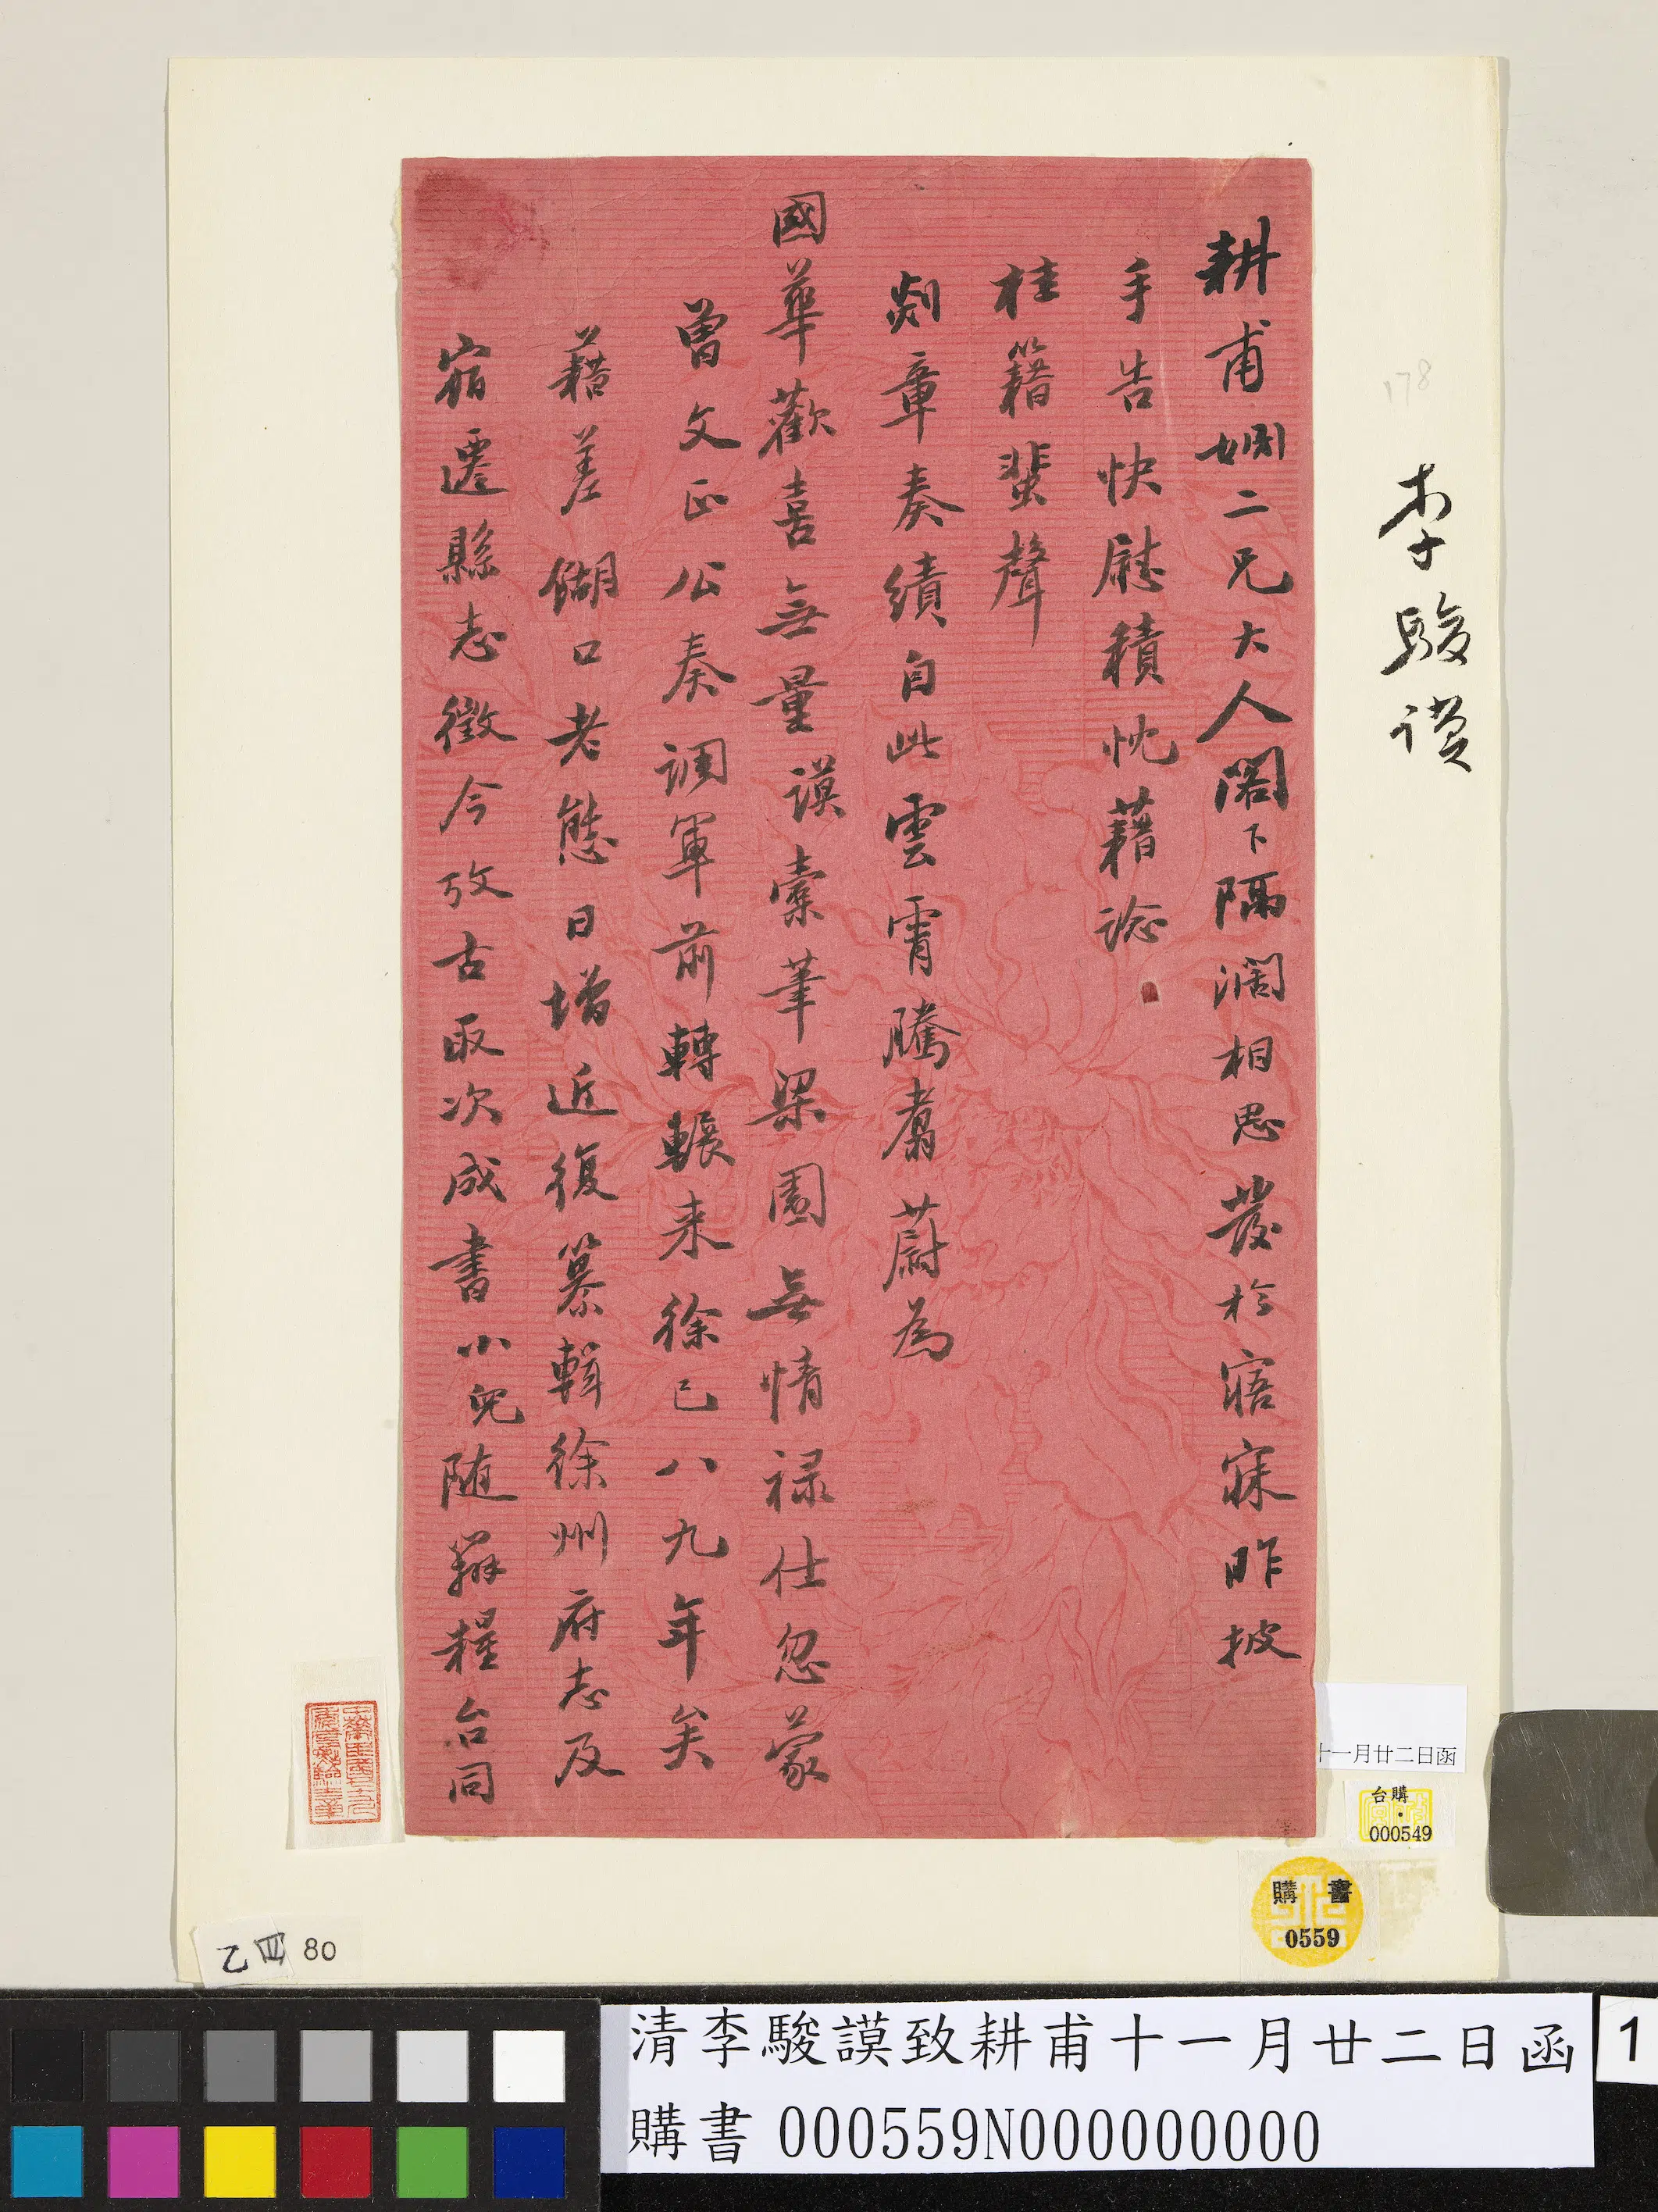 耕甫姻二兄大人閣下隔濶相思發於寤寐昨披
手告快慰積忱藉諗
桂籍蜚聲
剡章奏績自此雲霄騰翥蔚為
國華歡喜無量謨橐筆梁園無情祿仕忽蒙
曾文正公奏調軍前轉輾来徐已八九年矣
藉差餬口老態日增近復纂輯徐州府志及
宿遷縣志徵今攷古取次成書小兒随辦糧台同
李駿謨
178
十一月廿二日函
購
台
000549
購書
0559
乙四80
清李駿謨致耕甫十一月廿二日函
購書 000559N000000000
1